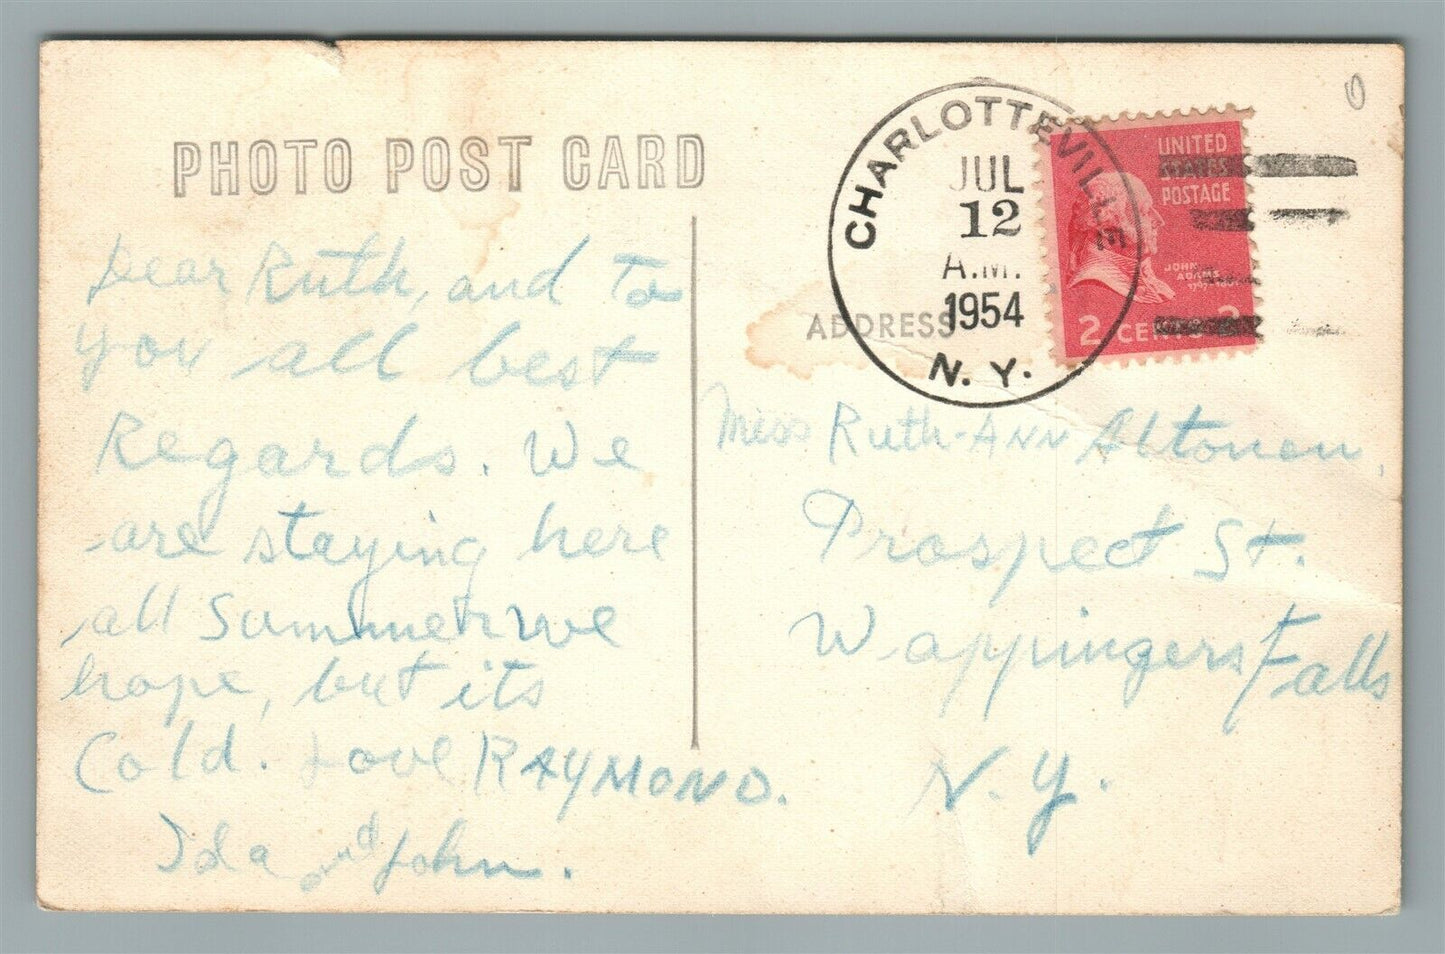 PHOTO POST CARD
Dear Ruth, and to
you all best
Regards. We
are staying here
all Summer we
hope, but its
Cold. Love RAYMOND.
Ida and John.
CHARLOTTEVILLE
JUL
12
A.M.
1954
N. Y.
UNITED
STATES
POSTAGE
JOHN
ADAMS
2 CENTS 2
ADDRESS
Miss Ruth-ANN Ahtonen,
Prospect St.
Wappingers Falls
N. Y.